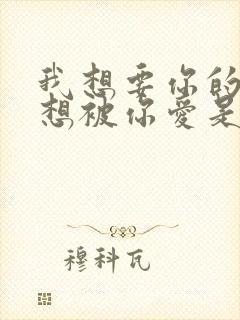 我想要你的
想被你爱是
穆科瓦